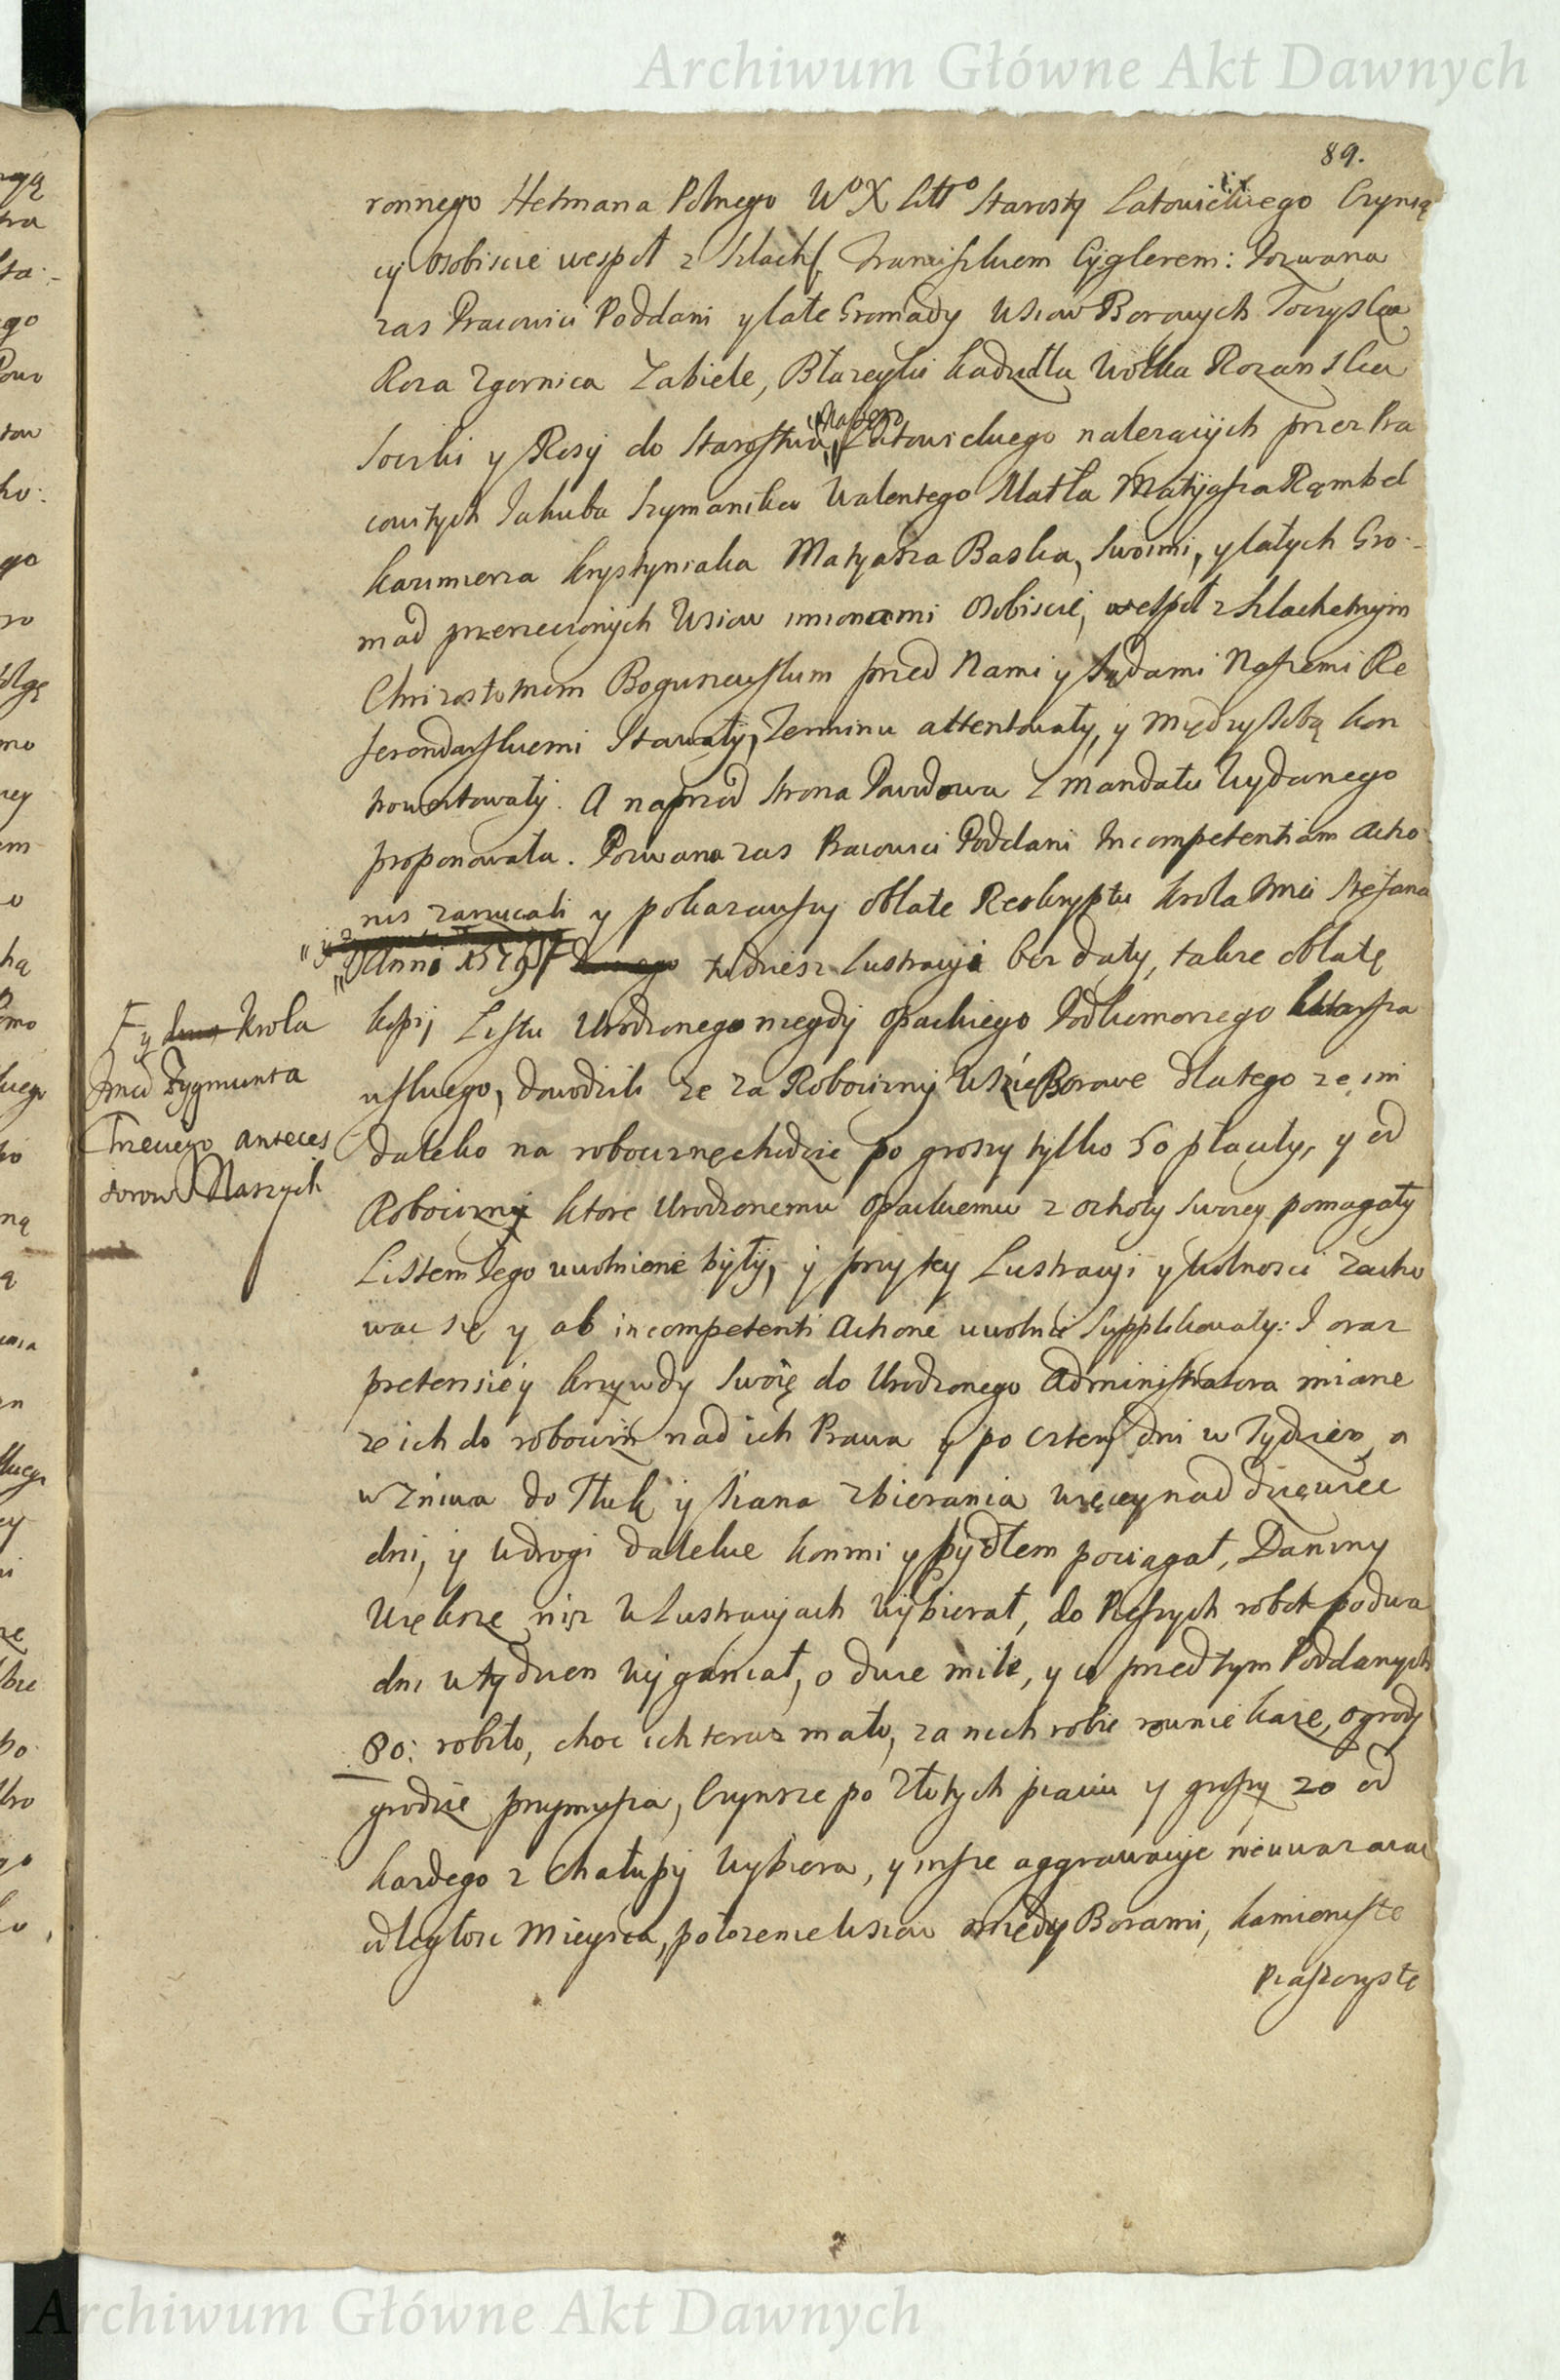 Archiwum Główne Akt Dawnych
89.
ronnego Hetmana Polnego WoX Litto Starosty Latowickiego Czynią
cy osobiscie wespoł z Szlach. Franciszkiem Cyglerem: Pozwana
zas Pracowici Poddani y całe Gromady Wsiow Borowych Toczyska
Roza Zgornica Zabiele, Błazeyki Kadzudła Wolka Rozanska
Jociski y Rosy do Starostwa Naszego Latowickiego nalezących przez Pra
cowitych Jakuba Szymanika Walentego Matła Matyasza Rąmbel
Kazimierza Krystyniaka Matyasza Baska, Swoimi, y całych Gro
mad przerzeczonych Wsiow imionami osobiscie, wespoł z Szlachetnym
Chrizostomem Boguszewskim przed Nami y Sądami Naszemi Re
ferendarskiemi Stawały, Terminu attentowały, y między Sobą kon
trowertowały. A naprzod strona Powodowa z Mandatu Wydanego
proponowała. Pozwana zas Pracowici Poddani Incompetentiam Actio
nis zarzucali y pokazawszy oblate Reskryptu Krola Jmci Stefana
Anni 1579 tudziesz Lustracyi bez daty, takze oblatę
F y Krola
Jmci Zygmunta
Trzeciego anteces
sorow Naszych
kopij Listu Urodzonego niegdy Opackiego Podkomorzego Warsza
wskiego, dowodzili ze za Robocizny Wsie Borowe dlatego ze im
daleko na robociznę chodzic po groszy tylko 50 płaciły, y od
Robocizny ktore Urodzonemu Opackiemu z ochoty Swoiey pomagały
Listem Jego uwolnione były, y przy tey Lustracyi y Wolnosci zacho
wac się y ab incompetenti Actione uwolnic Supplikowały: I oraz
pretensie y krzywdy Swoię do Urodzonego Administratora miane
ze ich do robocizn nad ich Prawa y po cztery dni w Tydzien, a
w Zniwa do Tłuk y Siana zbierania więcey nad dziewiec
dni, y w drogi dalekie konmi y bydłem pociągał, Daniny
Większe nisz w Lustracyach Wybierał, do Pieszych robot po dwa
dni w tydzien Wyganiał, o dwie mile, y co przed tym Poddanych
80: robiło, choc ich teraz mało, za nich robic rownie kaze, ogrody
grodzic przymusza, Czynsze po Złotych piąciu y groszy 20 od
kazdego z Chałupy Wybiera, y insze aggrawacye nieuwazaiąc
odległosc Mieysca, połozenie Wsiow między Borami, kamienyste
Piaszczyste
Archiwum Główne Akt Dawnych